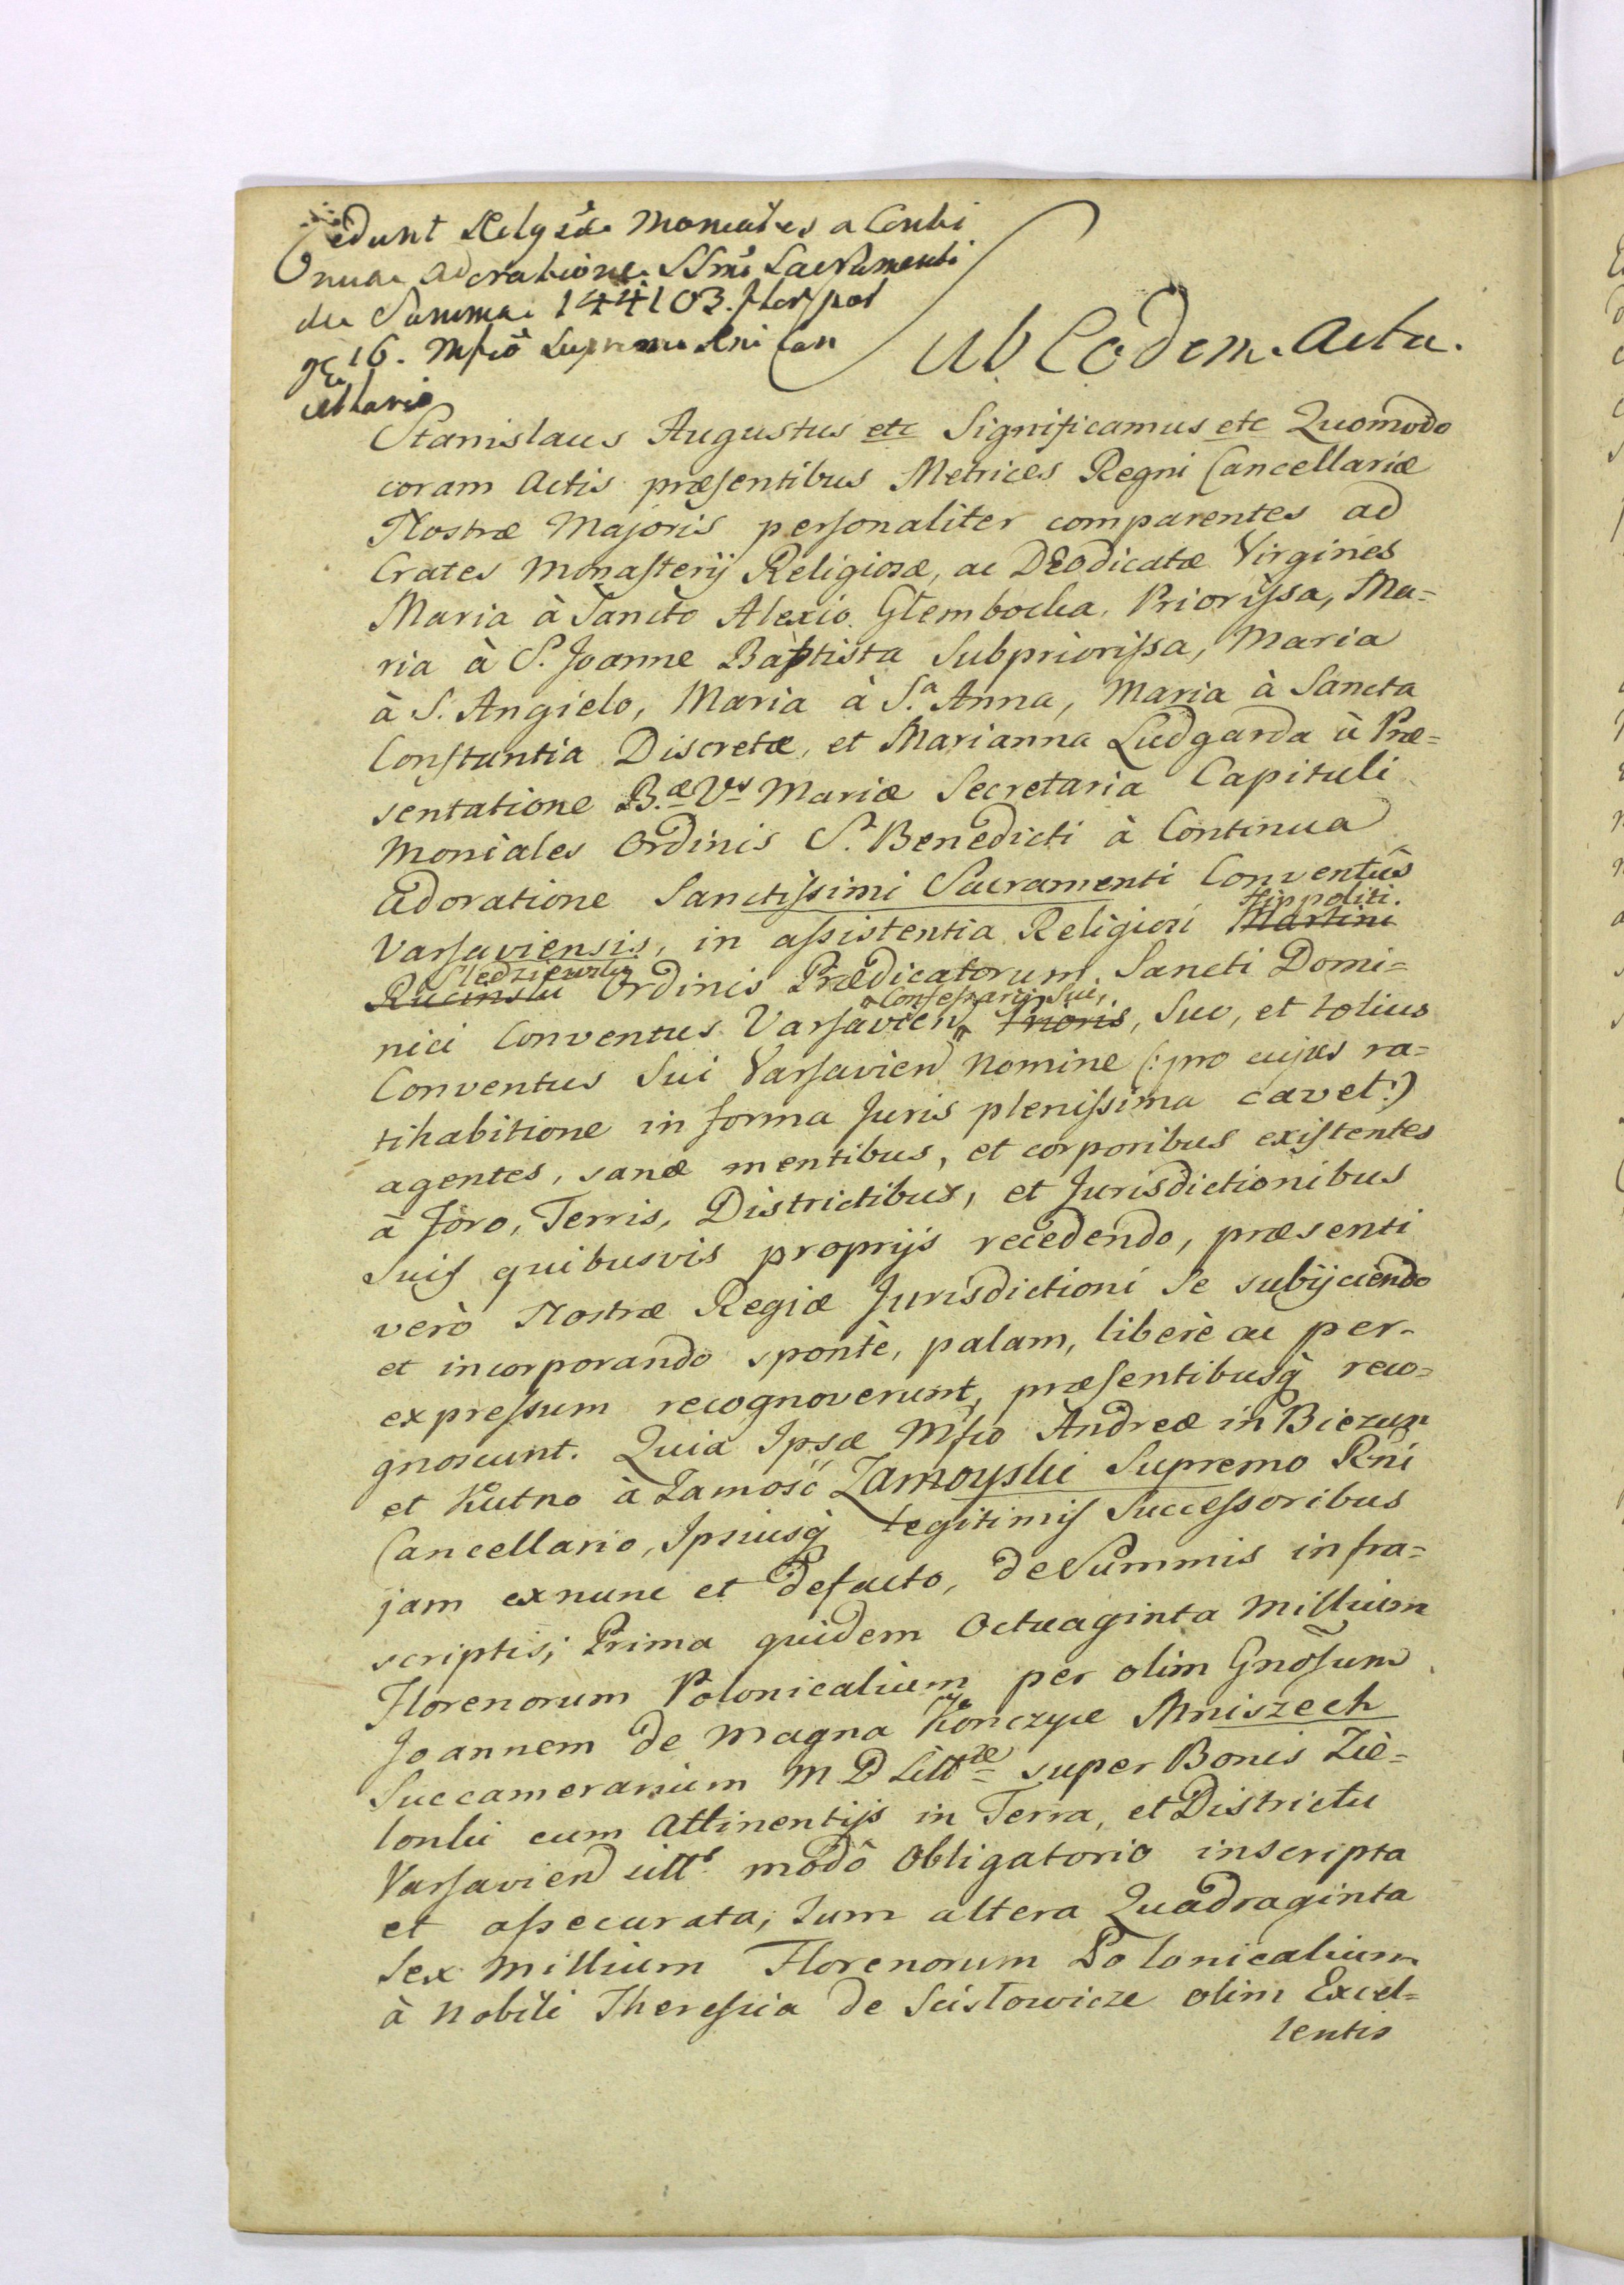 Cedunt Relgsæ Moniales a Conti
nua Adoratione SSmi Sacramenti
de Summa 144103. flor pol
gr 16. Mfco Supremo Rni Can
cellario
Sub Eodem Actu.
Stanislaus Augustus etc Significamus etc Quomodo
coram Actis præsentibus Metrices Regni Cancellariæ
Nostræ Majoris personaliter comparentes ad
Crates Monasterij Religiosæ, ac DEOdicatæ Virgines
Maria à Sancto Alexio Głembocka, Priorissa, Ma=
ria à S. Joanne Baptista Subpriorissa, Maria
à S. Angielo, Maria à S.a Anna, Maria à Sancta
Constantia Discretæ, et Marianna Ludgarda à Præ=
sentatione B.æ Vs Mariæ Secretaria Capituli
Moniales Ordinis S. Benedicti à Continua
Adoratione Sanctissimi Sacramenti Conventûs
Hippoliti.
Varsaviensis, in assistentia Religiosi Martini
Sledziewski
Rucinski Ordinis Prædicatorum Sancti Domi=
Confessarij Sui,
nici Conventus Varsavien Prioris, Suo, et totius
Conventus Sui Varsavien Nomine (: pro cujus ra=
tihabitione in forma Juris plenissima cavet :)
agentes, sanæ mentibus, et corporibus existentes
à Foro, Terris, Districtibus, et Jurisdictionibus
Suis quibusvis proprijs recedendo, præsenti
verò Nostræ Regiæ Jurisdictioni Se subijciendo
et incorporando spontè, palam, liberè ac per-
expressum recognoverunt, præsentibusq reco=
gnoscunt. Quia Ipsæ Mfco Andreæ in Biezun
et Kutno à Zamość Zamoyski Supremo Rni
Cancellario, Ipsiusq Legitimis Successoribus
jam exnunc et defacto, de Summis infra=
scriptis; Prima quidem Octuaginta Millium
Florenorum Polonicalium per olim Gnosum
Joannem de Magna Kończyce Mniszech
Succamerarium M D Littæ super Bonis Zie=
lonki cum Attinentijs in Terra, et Districtu
Varsavien sitts modô Obligatorio inscripta
et assecurata; Tum altera Quadraginta
Sex Millium Florenorum Polonicalium
à Nobili Theressia de Scisłowicze olim Excel=
lentis